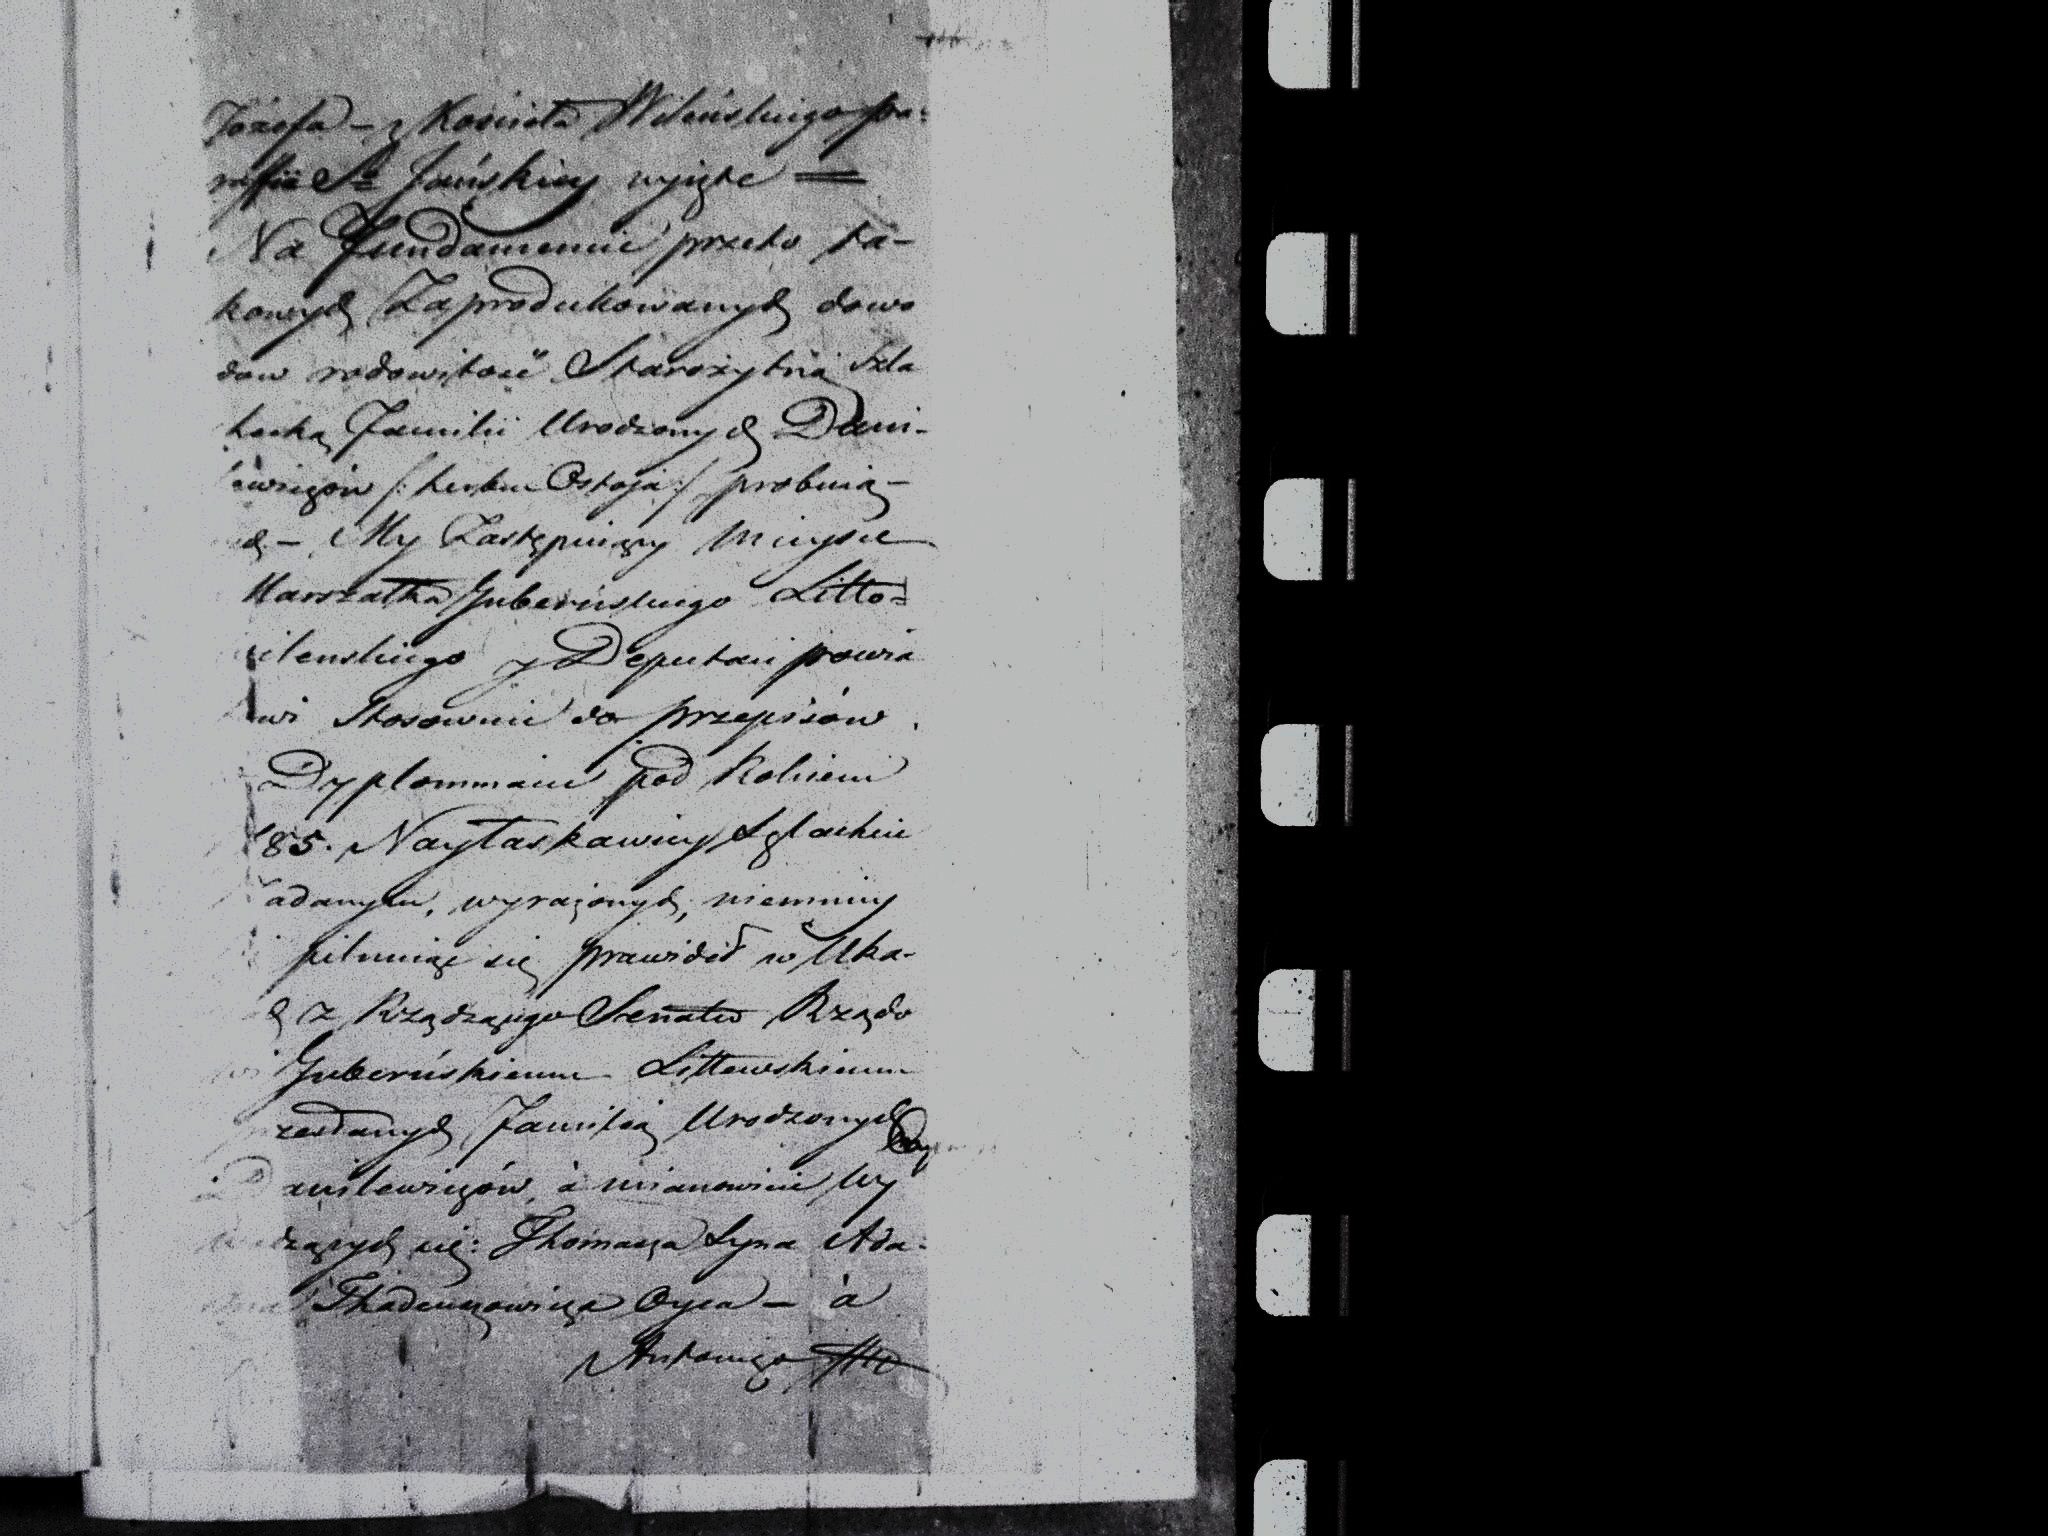 Józefa – z Kościoła Wileńskiego pa:
rafii St Jańskiey wyięte =
Na Fundamencie przeto ta–
kowych Zaprodukowanych dowo
dow rodowitość Starożytną Szla
checką Familii Urodzonych Dani-
lewiczów /: herbu Ostoja :/ probuią–
ch – My Zastępuiący Mieysce
Marszałka Guberńskiego Litto=
wilenskiego y Deputaci powia
towi Stosownie do przepisów
Dyplommacie pod Rokiem
1785. Nayłaskawiey Szlachcie
nadanym, wyrażonych, niemniey
pilnuiąc się prawideł w Uka-
ch z Rządzącego Senatu Rządo
wi Guberńskiemu Littewskiemu
przesłanych Familią Urodzonych
Danilewiczów, à mianowicie Wy
wodzących się: Thomasza Syna Ada-
ma Thadeuszowicza Oyca – à
Antoniego